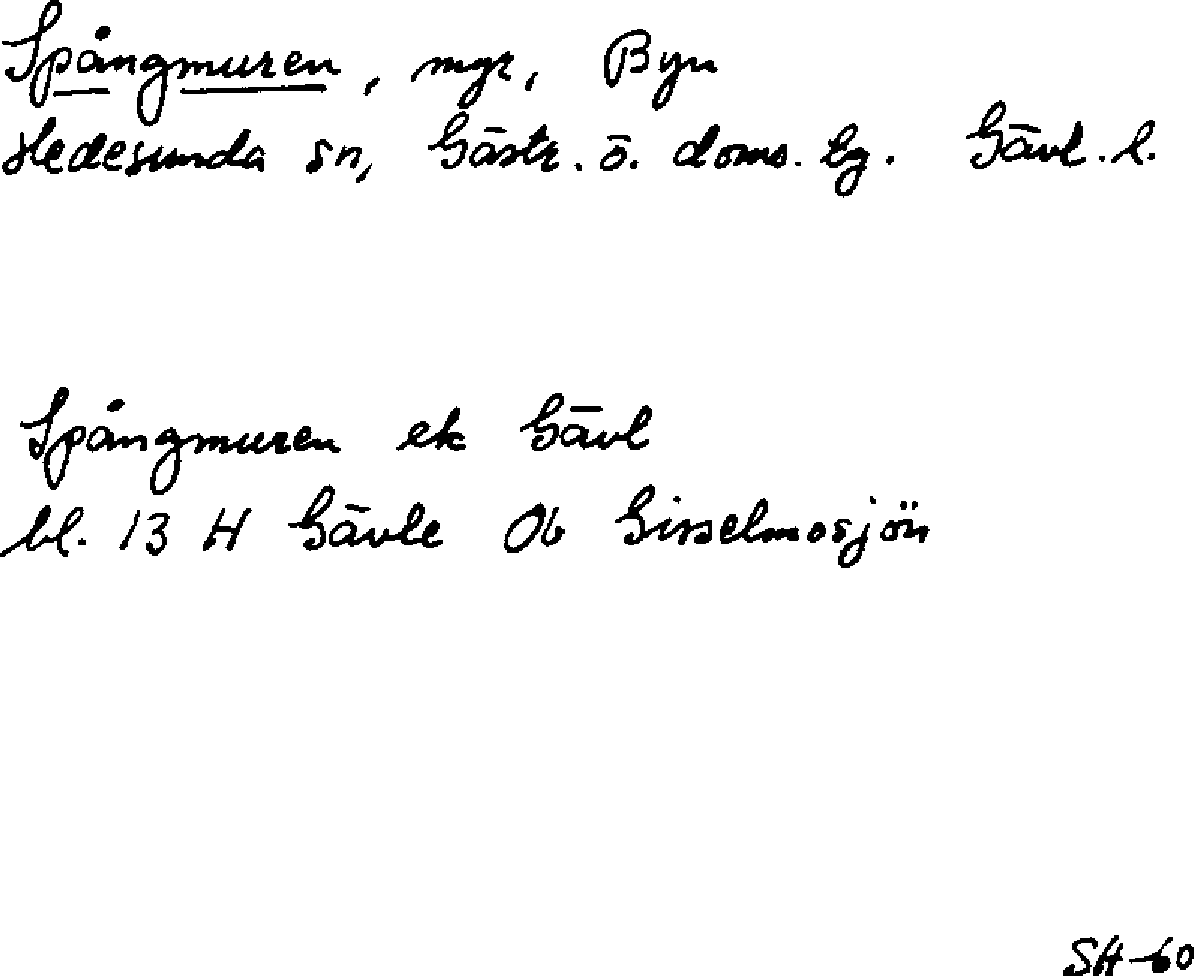 Spångmuren, mgr, Byn
Hedesunda sn, Gästr. ö. doms. lg. Gävl. l.
Spångmuren ek Gävl
bl. 13 H Gävle Ob Gisselmosjön
SH-60